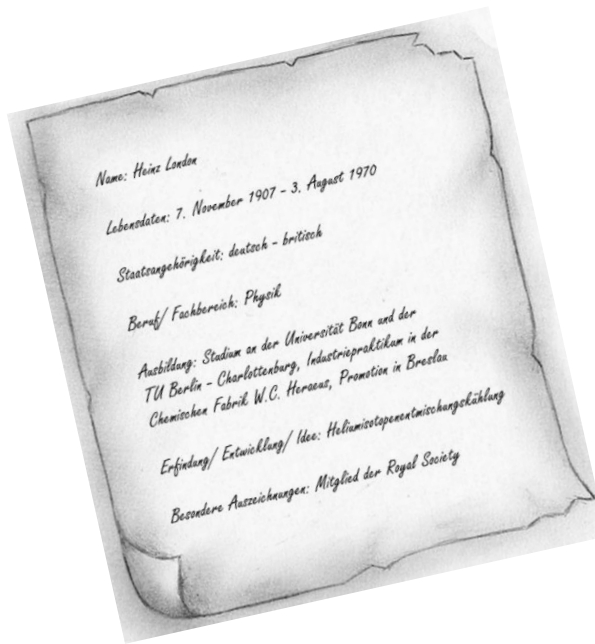 Name: Heinz London
Lebensdaten: 7. November 1907 - 3. August 1970
Staatsangehörigkeit: deutsch - britisch
Beruf/ Fachbereich: Physik
Ausbildung: Studium an der Universität Bonn und der
TU Berlin - Charlottenburg, Industriepraktikum in der
Chemischen Fabrik W.C. Heraeus, Promotion in Breslau
Erfindung/ Entwicklung/ Idee: Heliumisotopenentmischungskühlung
Besondere Auszeichnungen: Mitglied der Royal Society